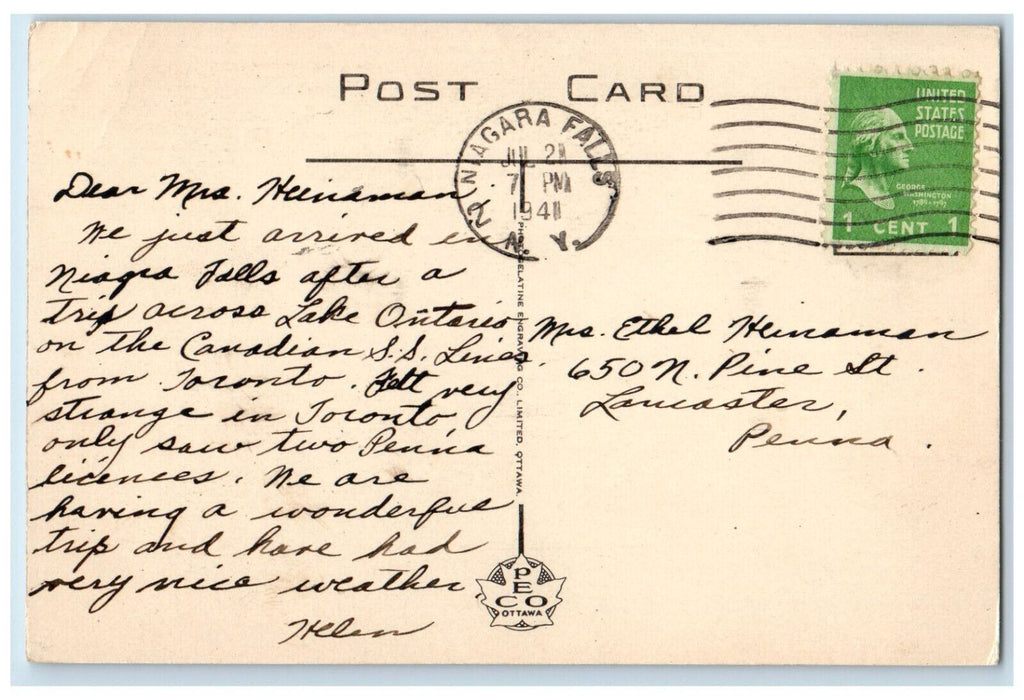 POST CARD
NIAGARA FALLS
2
JUL 21
7 PM
1941
N.Y.
UNITED
STATES
POSTAGE
GEORGE
WASHINGTON
1789-1797
1 CENT 1
Dear Mrs. Heinaman
We just arrived in
Niagra Falls after a
trip across Lake Ontario
on the Canadian S.S. Lines
from Toronto. Felt very
strange in Toronto,
only saw two Penna
licences. We are
having a wonderful
trip and have had
very nice weather,
Helen
PHOTOGELATINE ENGRAVING CO. LIMITED, OTTAWA
Mrs. Ethel Heinaman
650 N. Pine St.
Lancaster,
Penna.
PECO
OTTAWA